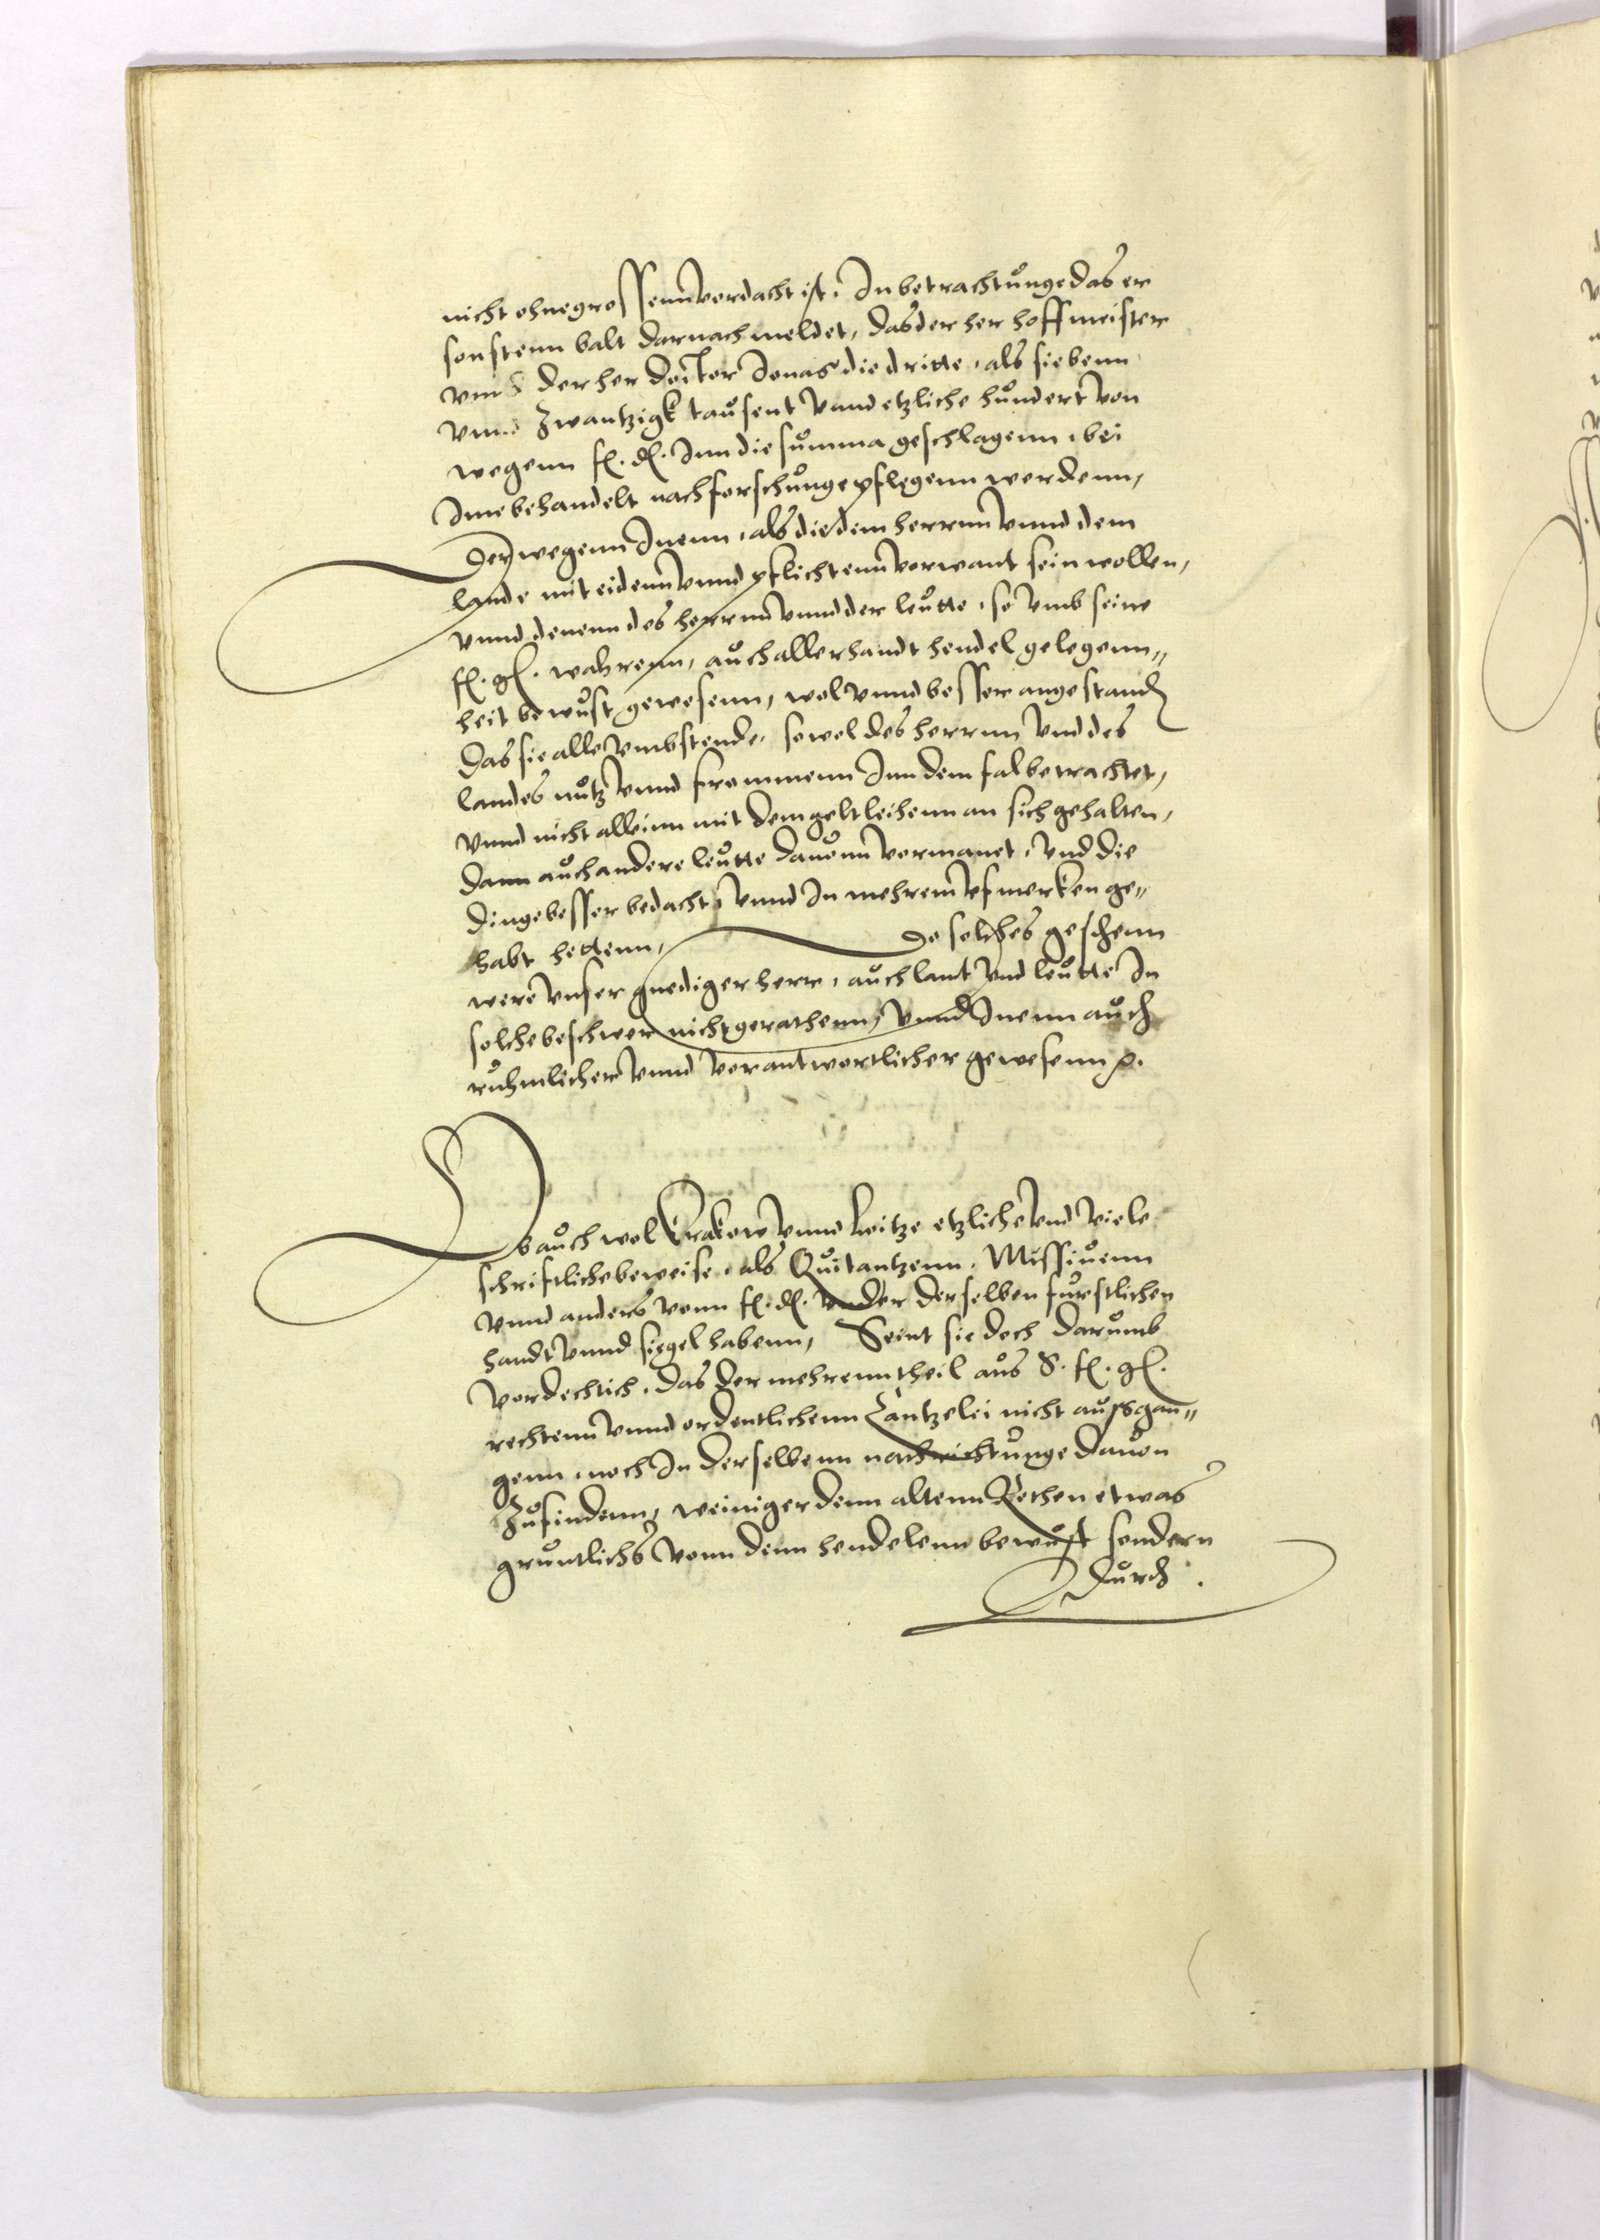 nicht ohne grossenn verdacht ist, In betrachtunge das er
sonstenn balt darnach meldet, das der her hoffmeister
vnd der her doctor Jonas die dritte, als siebenn
vnnd zwantzigk tausent vnnd etzliche hundert von
wegenn f. d. Inn die summa geschlagenn, bei
Ime behandelt nachforschunge pflegenn werdenn,
Derwegenn Inenn, als die dem herrnn vnnd dem
lande mit eidenn vnnd pflichtenn verwant sein wollen,
vnnd denenn des herrnn vnnd der leutte, so vmb seine
f. g. wahrenn, auch allerhandt hendel gelegenn„
heit bewust gewesenn, wol vnnd besser angestanden
das sie alle vmbstende, sowol des herrnn vnd des
landes nutz vnnd frommenn Inn dem fal betrachtet,
vnnd nicht alleinn mit dem geltleihenn an sich gehalten,
dann auch andere leutte dauonn vermanet, vnd die
dinge besser bedacht vnnd In mehrem vfmerken ge„
habt hettenn, Do solches geschenn
were vnser gnediger herr, auch lant vnd leutte In
solche beschwer nicht gerathenn, vnnd Inenn auch
ruhmlicher vnnd verantwortlicher gewesenn
Ob auch wol Krakow vnnd Leitze etzliche vnd viele
schriftliche beweise, als Quitantzenn, Missiuenn
vnnd anders vonn f. d. vnder derselben furstlichen
handt vnnd siegel habenn, Seint sie doch darumb
verdechtich, das der mehrenn theil aus S. f. g.
rechtenn vnnd ordentlichenn Cantzelei nicht aussgan„
genn, noch In derselbenn nachrichtunge dauon
zufindenn, weiniger denn altenn Rethen etwas
gruntlichs vonn denn hendelenn bewust sondern
durch